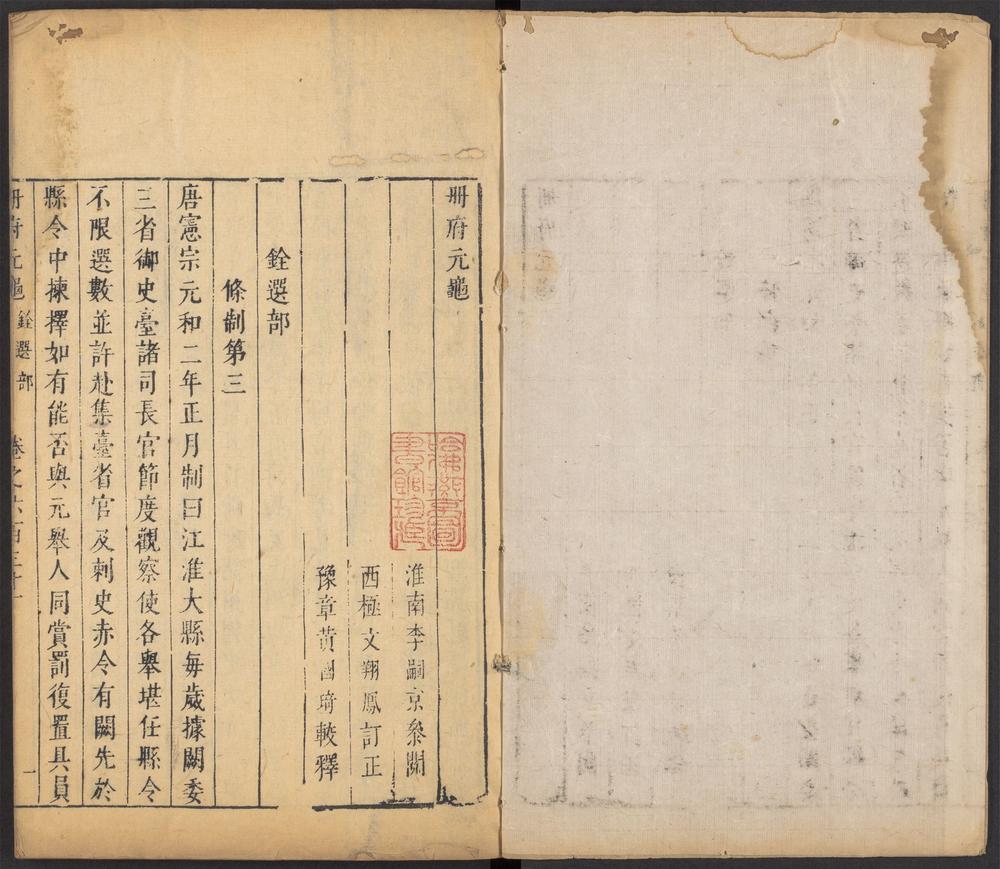 冊府元龜
淮南李嗣京叅閱
西極文翔鳳訂正
豫章黃國琦較釋
銓選部
條制第三
唐憲宗元和二年正月制曰江淮大縣每歲據闕委
三省御史臺諸司長官節度觀察使各舉堪任縣令
不限選數並許赴集臺省官及刺史赤令有闕先於
縣令中揀擇如有能否與元舉人同賞罰復置具員
冊府元龜 銓選部 卷之六百三十一 一
哈佛燕京圖書館珍藏